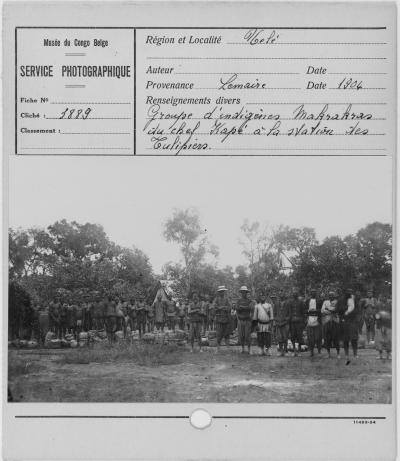 Musée du Congo Belge
SERVICE PHOTOGRAPHIQUE
Fiche No
Cliché : 3889
Classement :
Région et Localité Uelé
Auteur Date
Provenance Lemaire Date 1904
Renseignements divers
Groupe d'indigènes Makrakras
du chef Kapé à la station des
Tulipiers.
11493-54